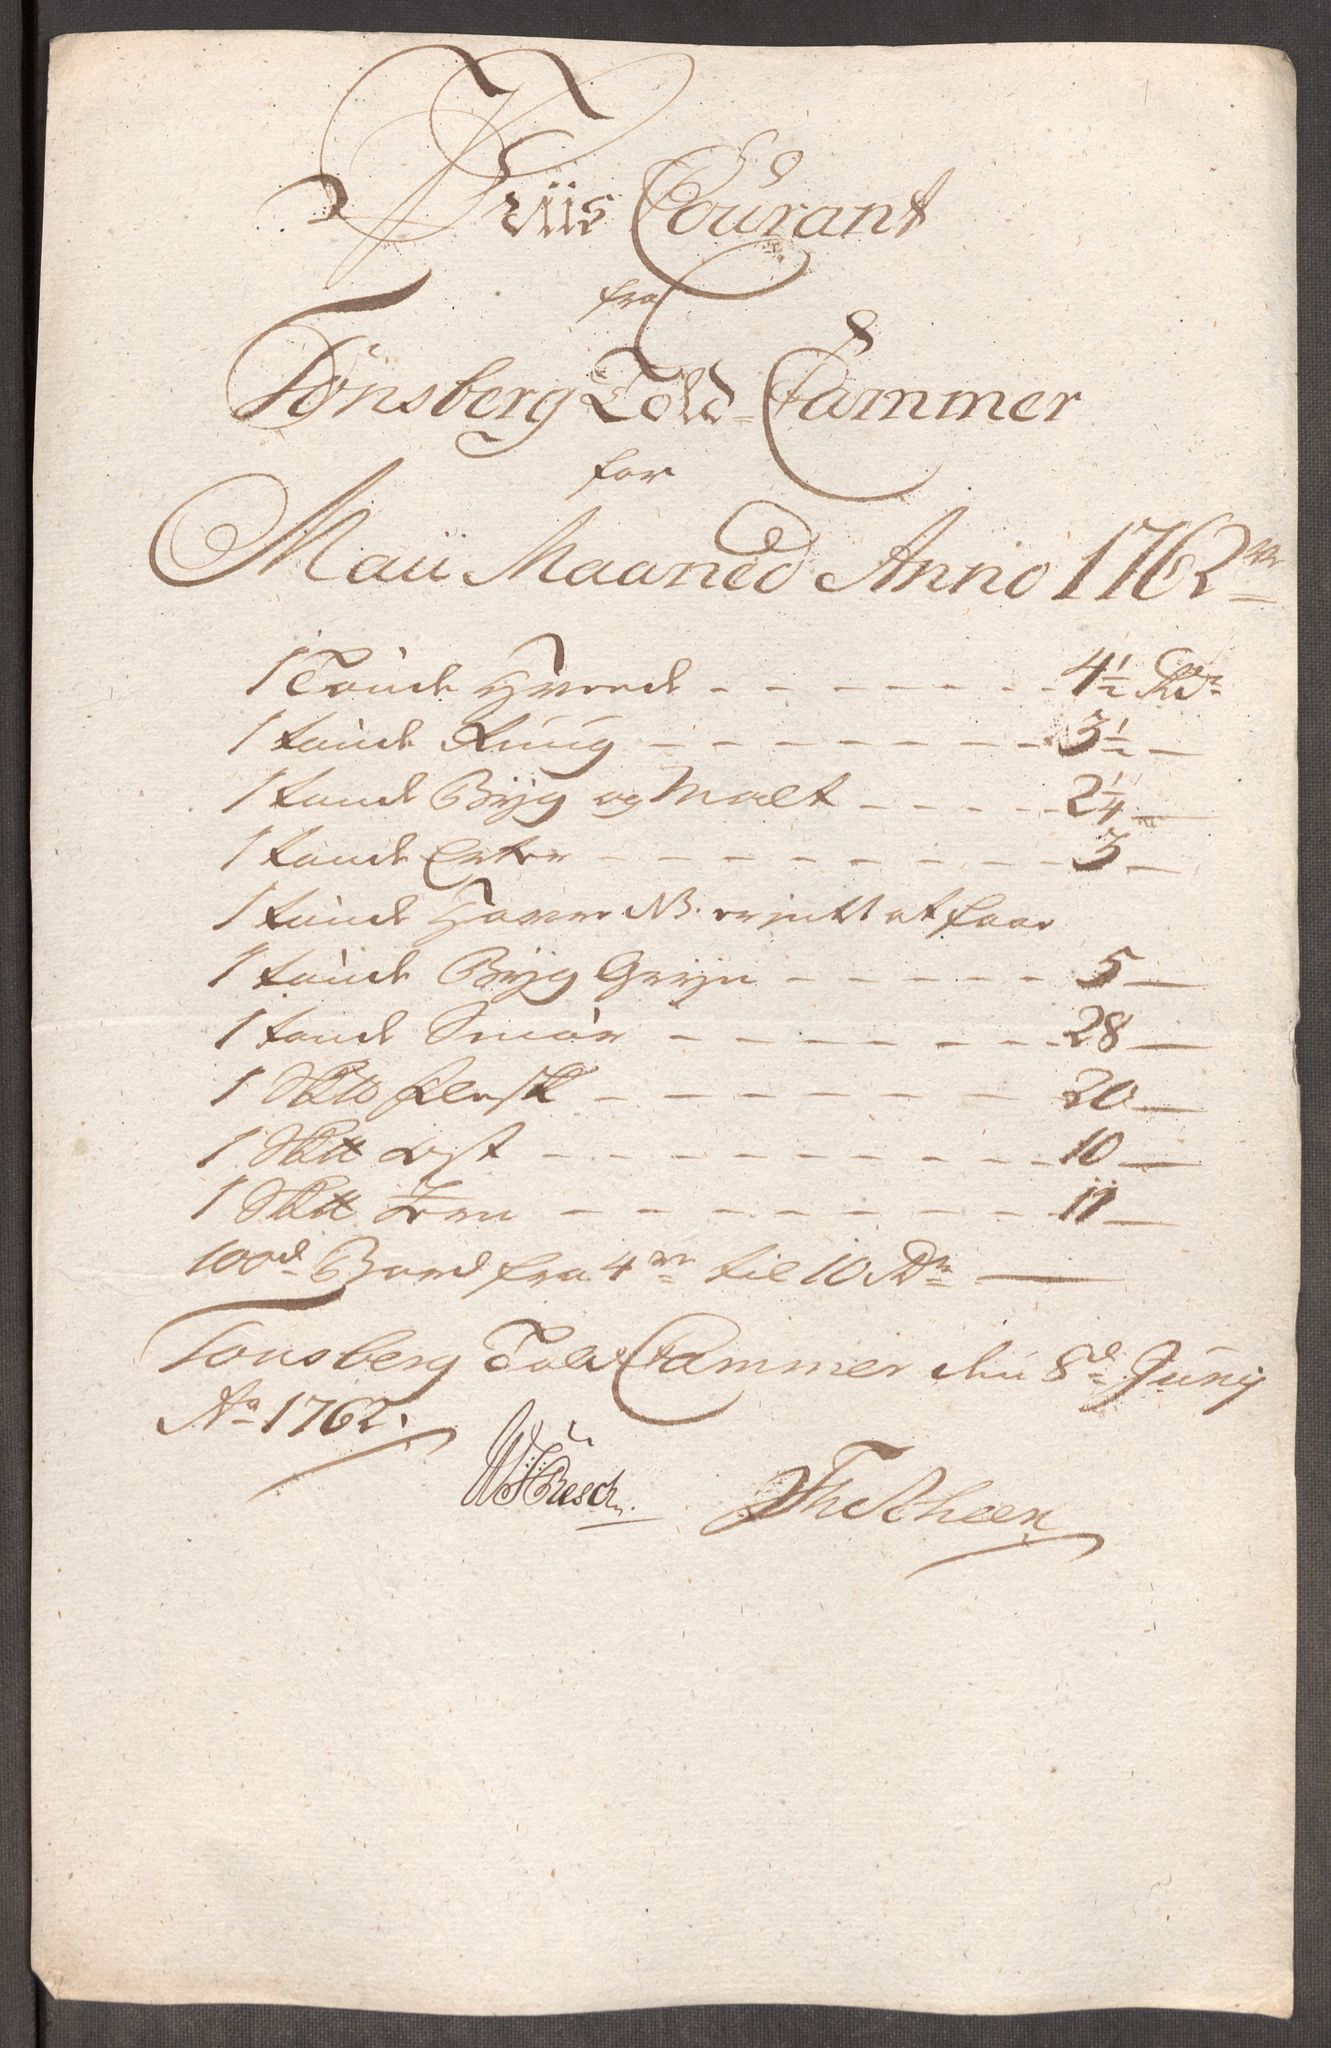 Priis Courant
fra
Tönsberg Told-Cammer
for
Maii Maaned Anno 1762
1 Tønde Hvede - - - - - - 4½ Rdr
1 tønde Rúúg - - - - - - - 3½ —
1 tønde Bÿg og Malt - - - - 2¼ —
1 tønde Erter - - - - - - - - 3 —
1 tønde Havre NB. er intet at faae
1 tønde Bÿg Grÿn - - - - - 5 —
1 tønde Smör - - - - - - - 28 —
1 Sk℔ flesk - - - - - - - 20 —
1 Sk℔ ost - - - - - - - - 10 —
1 Sk℔ Jern - - - - - - - - 11 —
100de Bord fra 4re til 10 Rdr —
Tonsberg Told Cammer den 8de Junij
Ao 1762.
Resch. Th Scheen